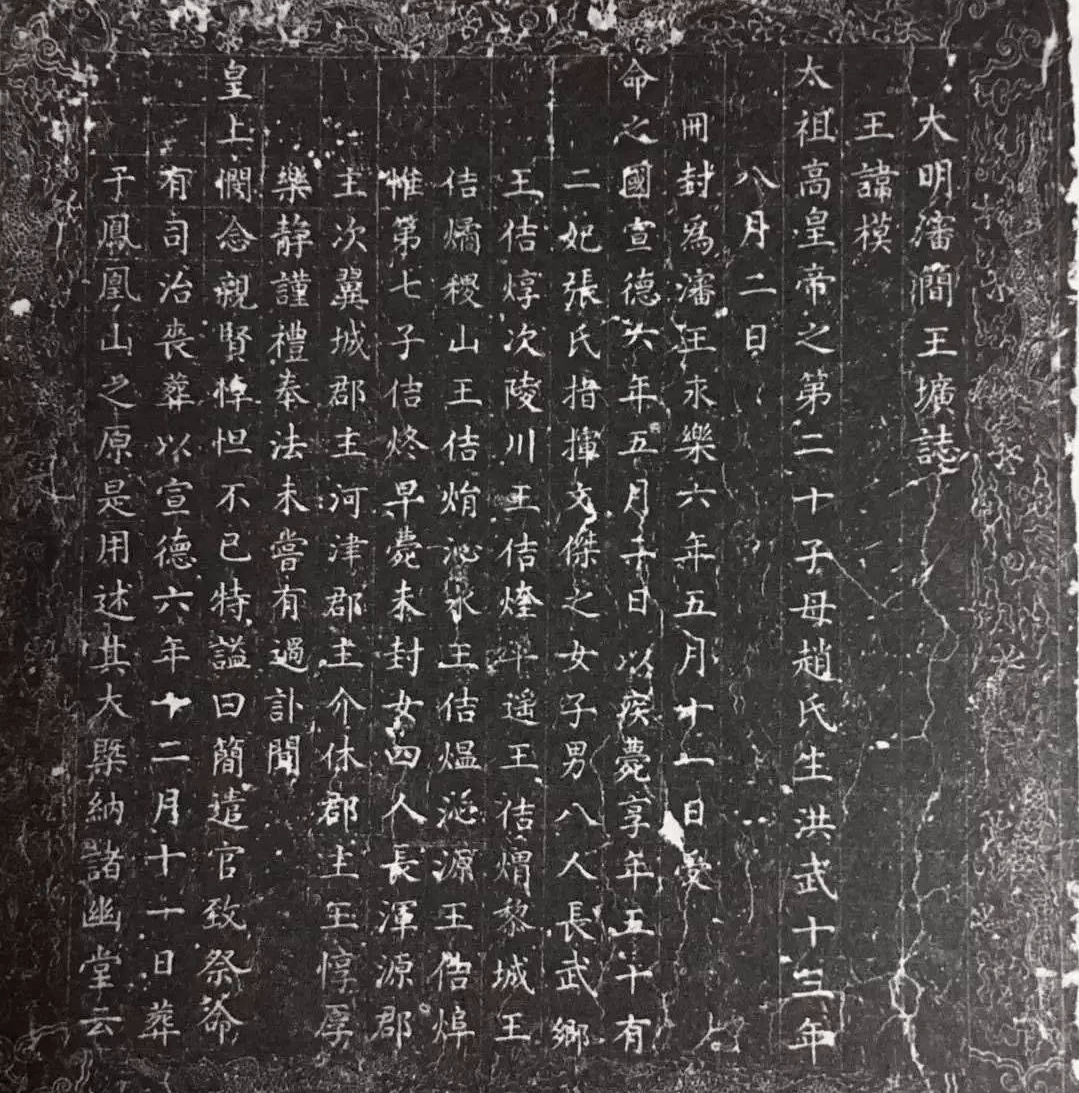 大明瀋簡王壙誌
王諱模
太祖高皇帝之第二十子母趙氏生洪武十三年
八月二日
冊封為瀋王永樂六年五月十一日受
命之國宣德六年五月十日以疾薨享年五十有
二妃張氏指揮文傑之女子男八人長武鄉
王佶焞次陵川王佶煃平遥王佶焨黎城王
佶燆稷山王佶焇沁水王佶熅沁源王佶焞
惟第七子佶炵早薨未封女四人長渾源郡
主次翼城郡主河津郡主介休郡主王惇厚
樂靜謹禮奉法未嘗有過訃聞
皇上憫念親賢悼怛不已特謚曰簡遣官致祭命
有司治喪葬以宣德六年十二月十一日葬
于鳳凰山之原是用述其大槩納諸幽堂云